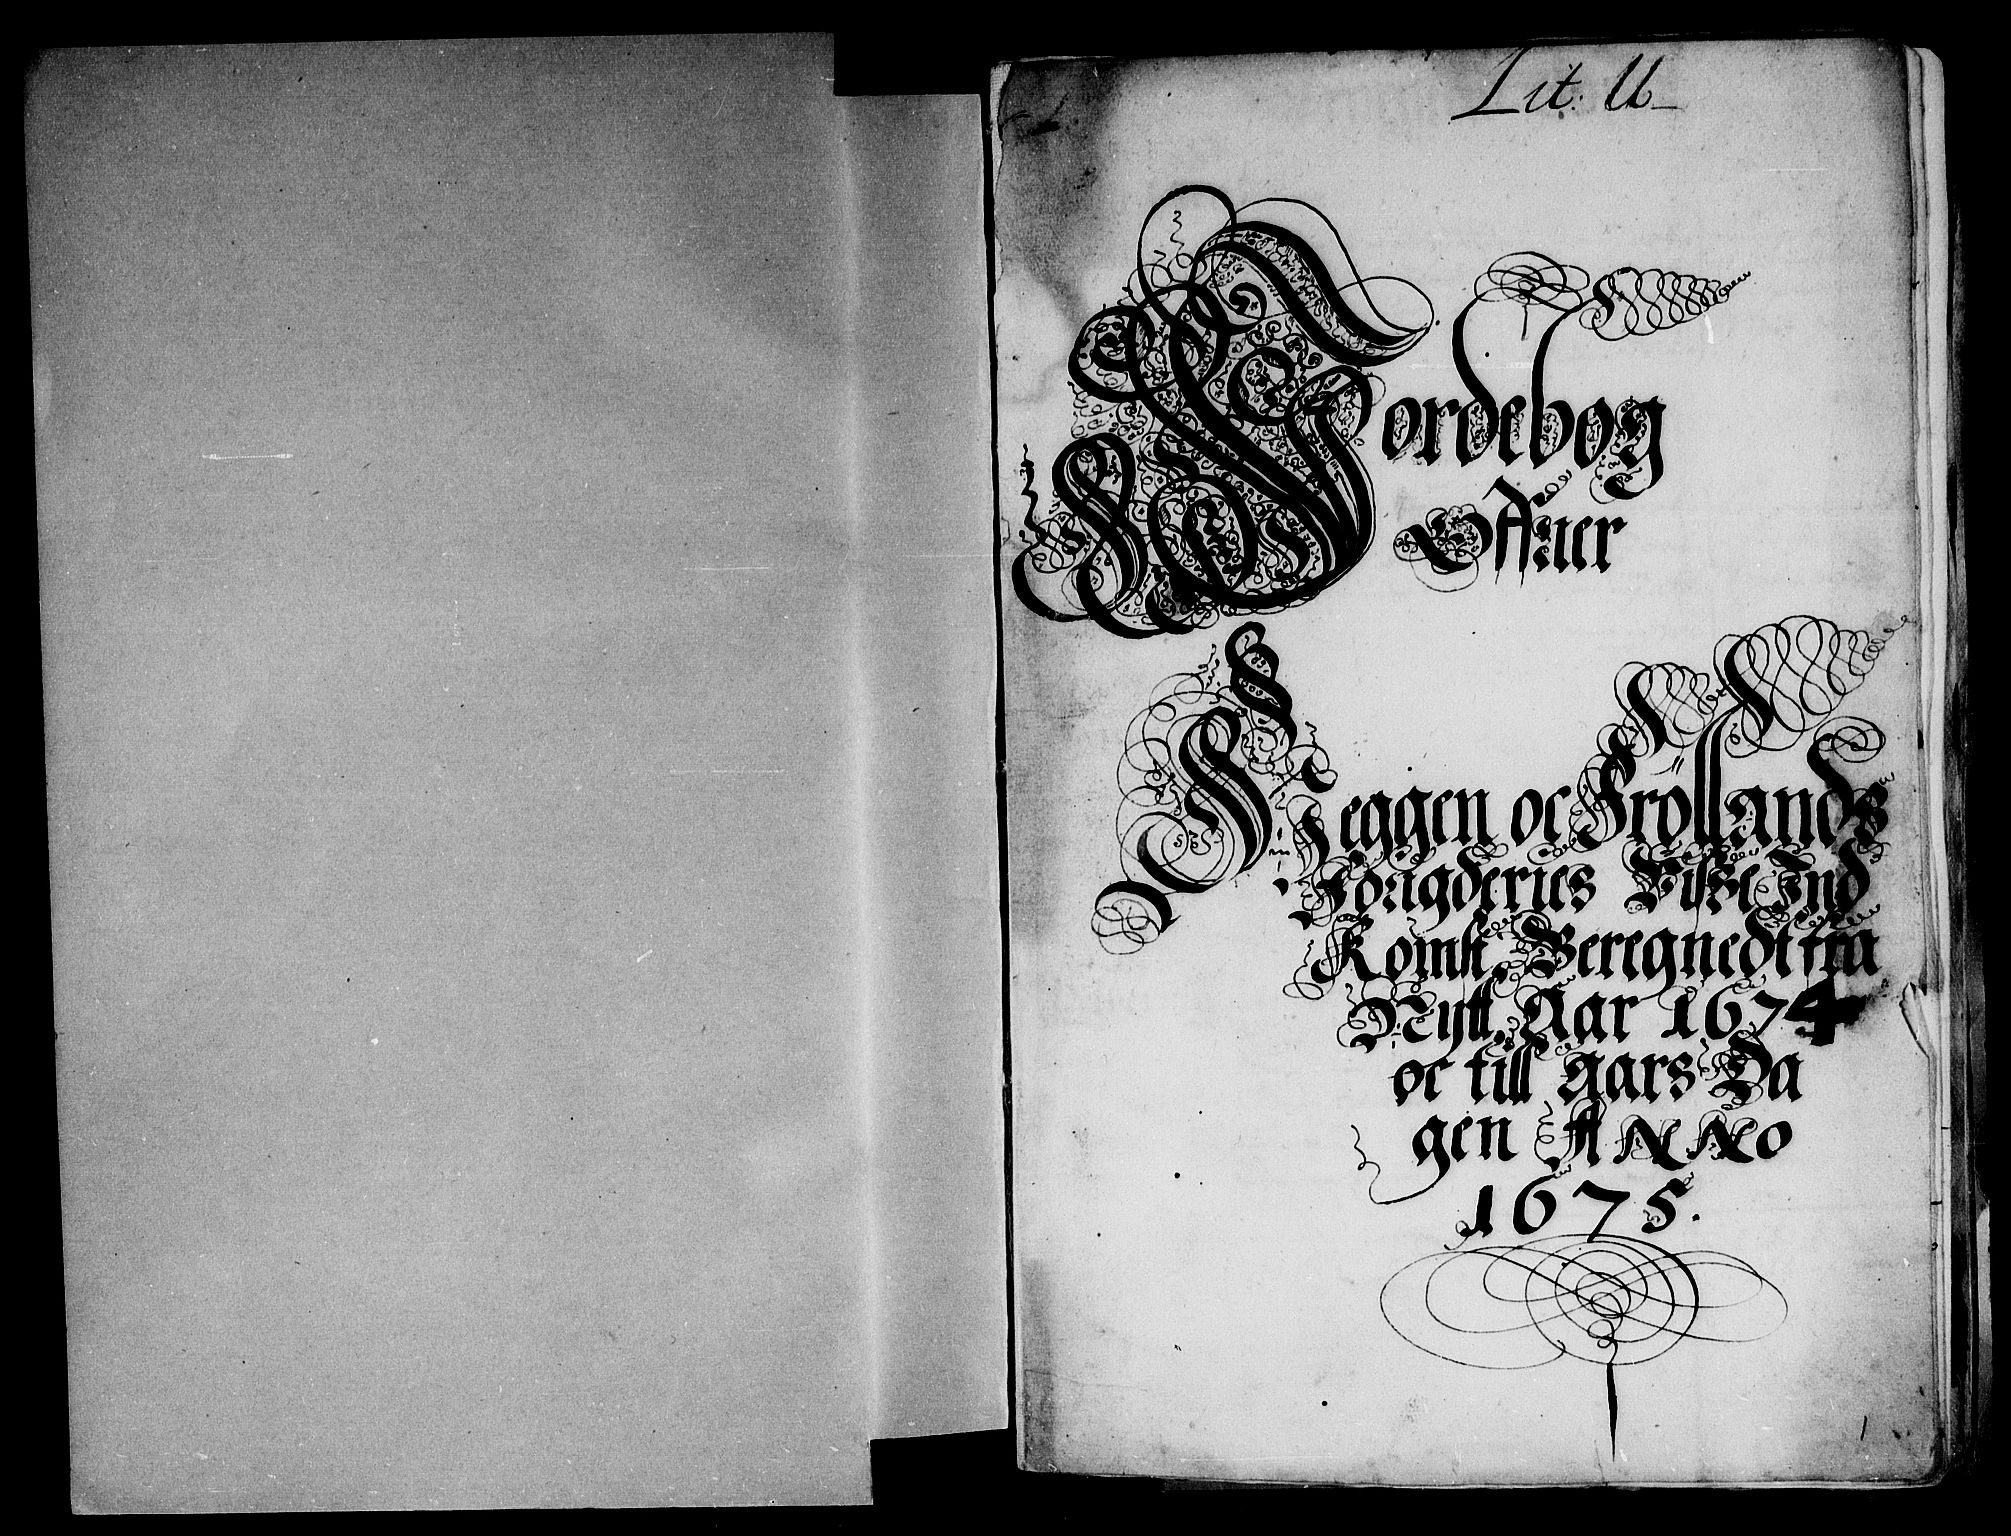 Lit: U
Jordebog
Offuer
Jeggen oc Frøllands
Fougderies Visse Ind
Komst, Beregnedt fra
Nytt Aar 1674
oc till Aars Da
gen ANNo
1675.
1